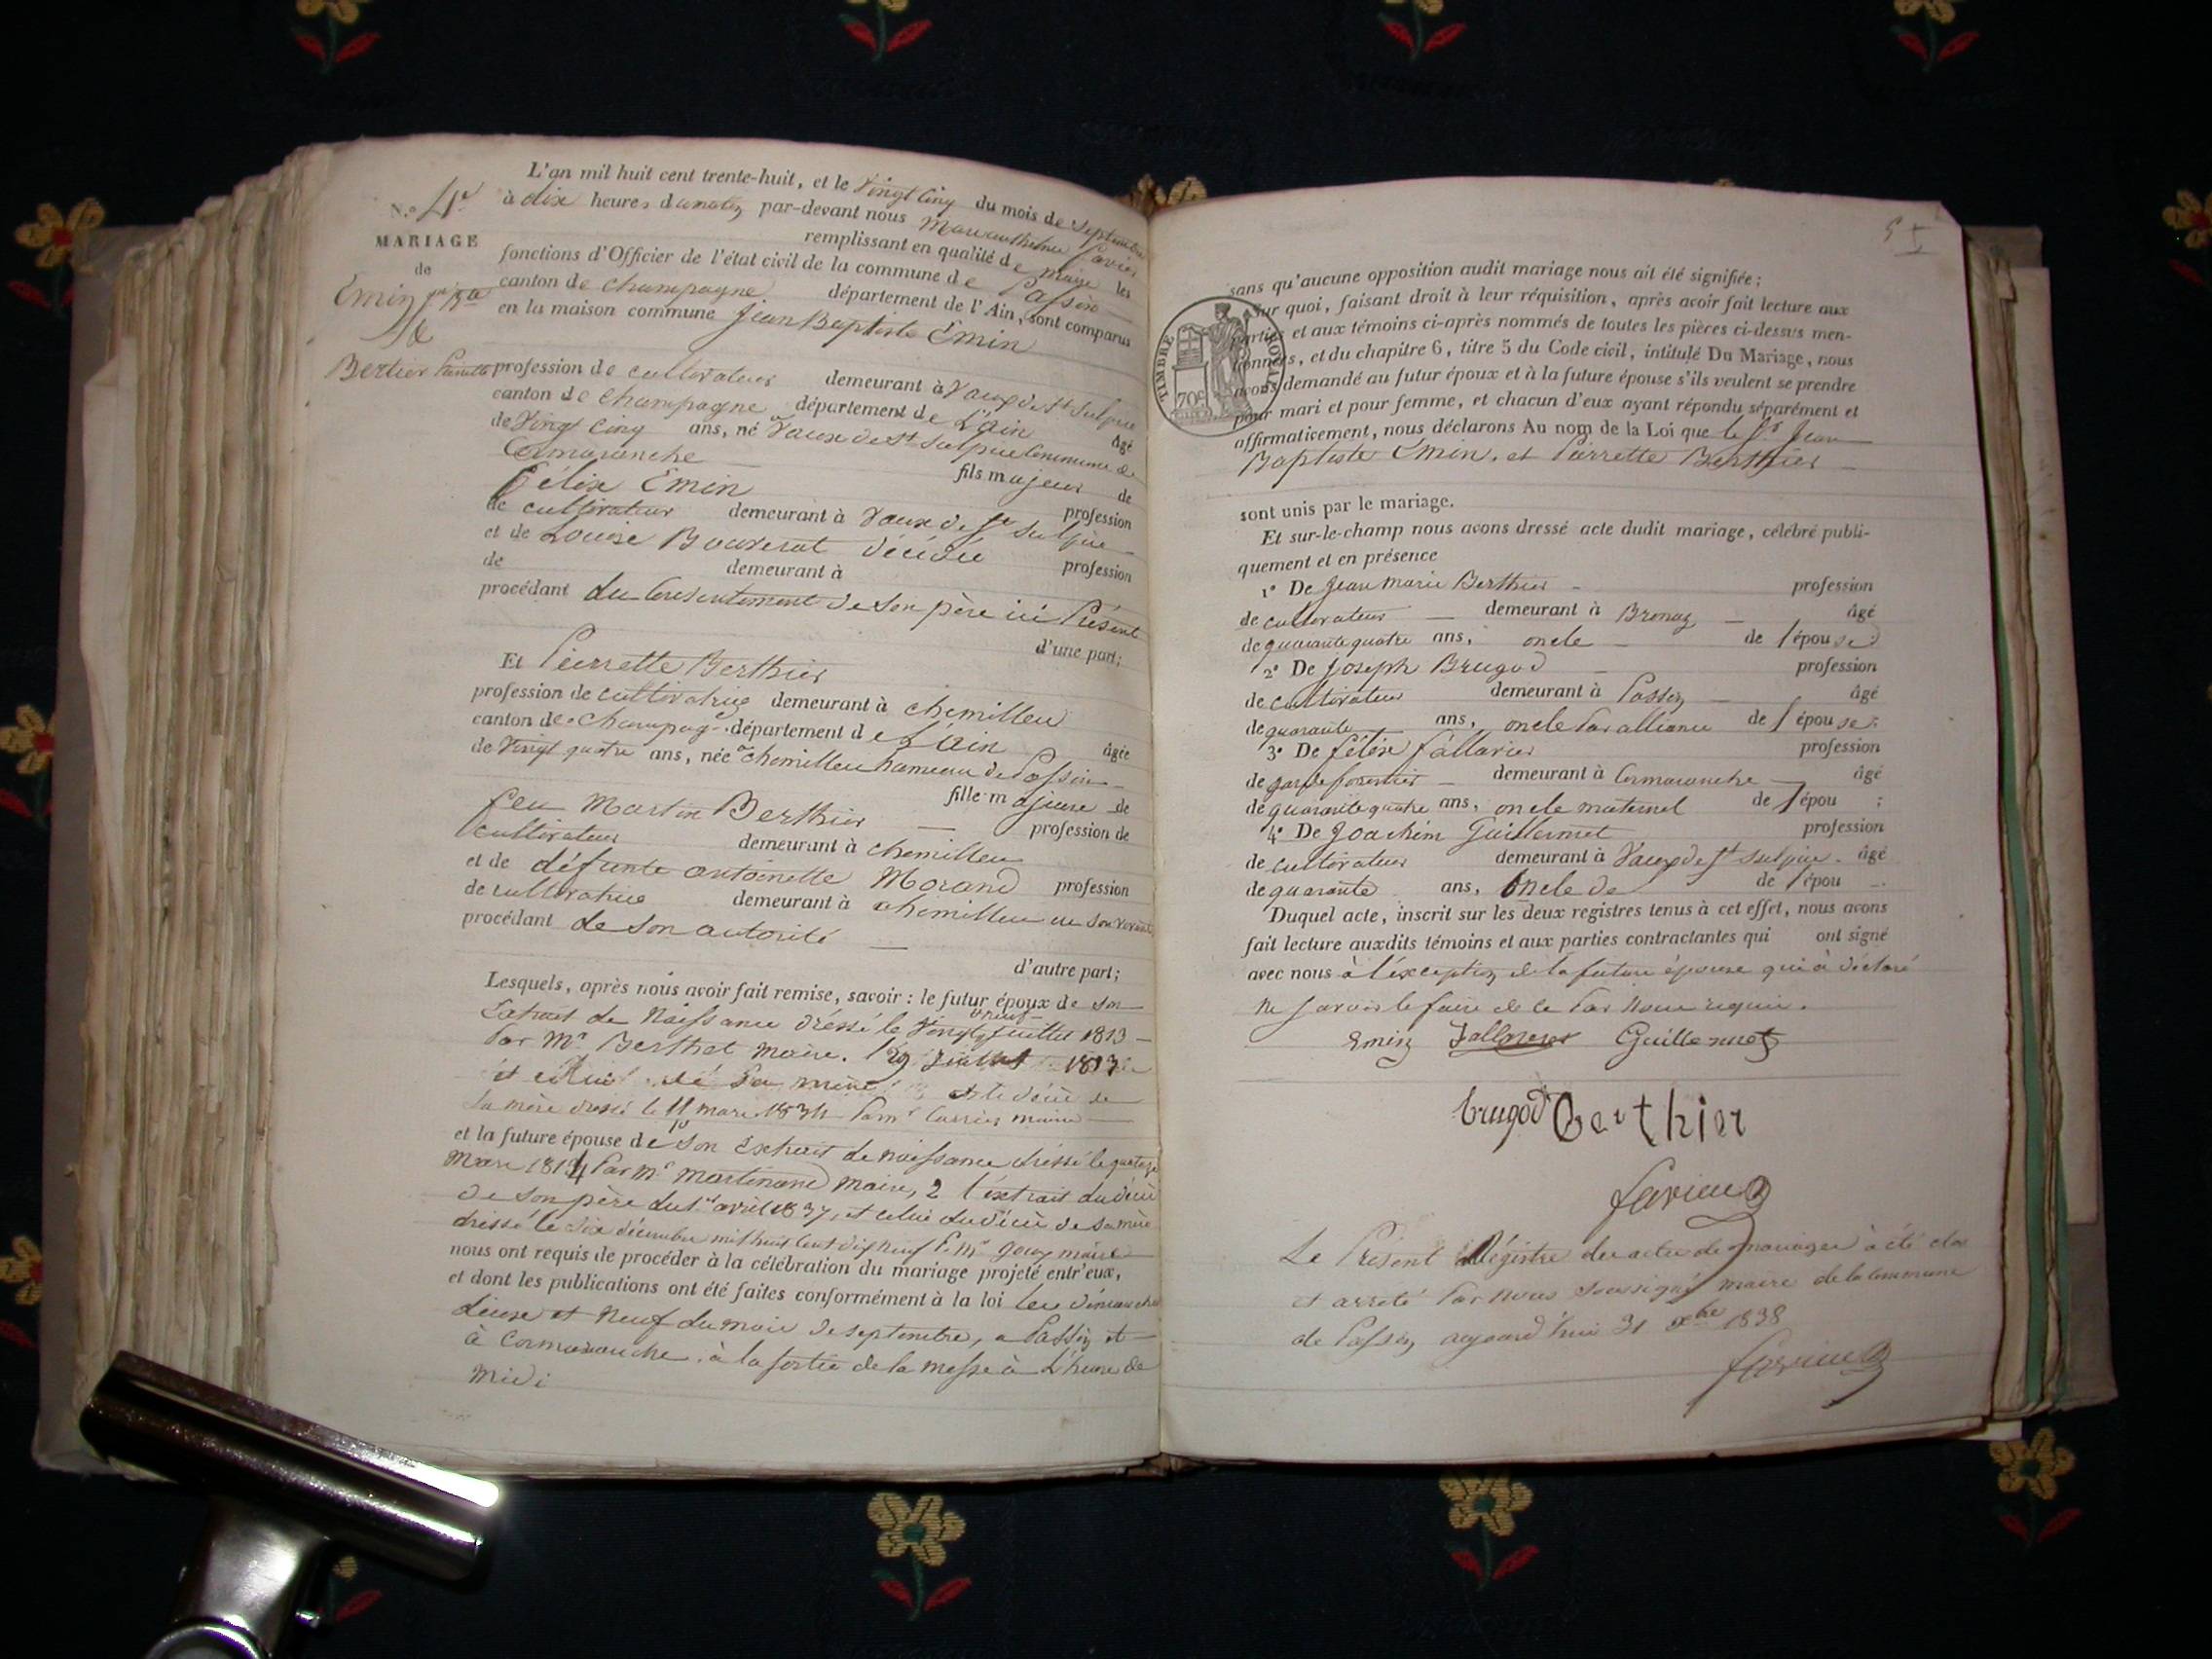 N.º 4e
MARIAGE
de
Emin
&
Bertier Pierrette
L'an mil huit cent trente-huit, et le Vingt Cinq du mois de Septembre
à dix heures du matin par-devant nous
remplissant en qualité de maire les
fonctions d'Officier de l'état civil de la commune de Passin
canton de Champagne département de l'Ain, sont comparus
en la maison commune Jean Baptiste Emin
profession de cultivateur demeurant à Vaux de St Sulpice
canton de Champagne département de L'ain âgé
de Vingt Cinq ans, né à Vaux de St Sulpice Commune de
Cormaranche fils majeur de
Félix Emin profession
de cultivateur demeurant à Vaux de St Sulpice
et de Louise Bouverat décédée profession
de demeurant à
procédant du Consentement de son père ici Présent
d'une part;
Et Pierrette Berthier
profession de cultivatrice demeurant à chemilleu
canton de Champag. département de L'ain âgée
de Vingt quatre ans, née à chemilleu hameau de Passin
fille majeure de
feu Martin Berthier profession de
Cultivateur demeurant à chemilleu
et de défunte antoinette Morand profession
de cultivatrice demeurant à chemilleu en son vivant
procédant de son autorité
d'autre part;
Lesquels, après nous avoir fait remise, savoir : le futur époux de son
Extrait de Naissance dréssé le Vingt neuf Juillet 1813
Par Mr Berthet Maire. 29 Juillet 1813
et de sa mère et le décès de
Sa mère dressé le 11 mars 1834 Par mr maire
et la future épouse de 1º son Extrait de naissance dréssé le quatorze
Mars 1814 Par Mr Martinand Maire, 2 l'extrait du décès
de son père du 1er avril 1837, et celui du décès de sa mère
dressé le dix décembre mil huit Cent dix neuf P. Mr Gouy maire
nous ont requis de procéder à la célébration du mariage projeté entr'eux,
et dont les publications ont été faites conformément à la loi les dimanches
deux et Neuf du mois de septembre, a Passin et
à Cormaranche, à la sortie de la messe à L'heure de
Midi
TIMBRE ROYAL
70c
sans qu'aucune opposition audit mariage nous ait été signifiée;
Sur quoi, faisant droit à leur réquisition, après avoir fait lecture aux
parties et aux témoins ci-après nommés de toutes les pièces ci-dessus men-
tionnées, et du chapitre 6, titre 5 du Code civil, intitulé Du Mariage, nous
avons demandé au futur époux et à la future épouse s'ils veulent se prendre
pour mari et pour femme, et chacun d'eux ayant répondu séparément et
affirmativement, nous déclarons Au nom de la Loi que le Sr Jean
Baptiste Emin. et Pierrette Berthier
sont unis par le mariage.
Et sur-le-champ nous avons dressé acte dudit mariage, célébré publi-
quement et en présence
1º De Jean Marie Berthier profession
de cultivateur demeurant à Bronaz âgé
de quarante quatre ans, oncle de l'épouse
2º De Joseph Brugod profession
de cultivateur demeurant à Passin âgé
de quarante ans, oncle Par alliance de l'épouse;
3º De Félix Fallavier profession
de garde forestier demeurant à Cormaranche âgé
de quarante quatre ans, oncle maternel de l'épou ;
4º De Joachim Guillermet profession
de cultivateur demeurant à Vaux de St Sulpice. âgé
de quarante ans, Oncle de de l'épou
Duquel acte, inscrit sur les deux registres tenus à cet effet, nous avons
fait lecture auxdits témoins et aux parties contractantes qui ont signé
avec nous à l'éxception de la future épouse qui à déclaré
ne savoir le faire de ce Par Nous requis.
Emin Guillermet
brugod Berthier
Le Présent Régistre des actes de mariages à été clos
et arrêté Par nous soussigné maire de la Commune
de Passin, aujourd'hui 31 Xbre 1838